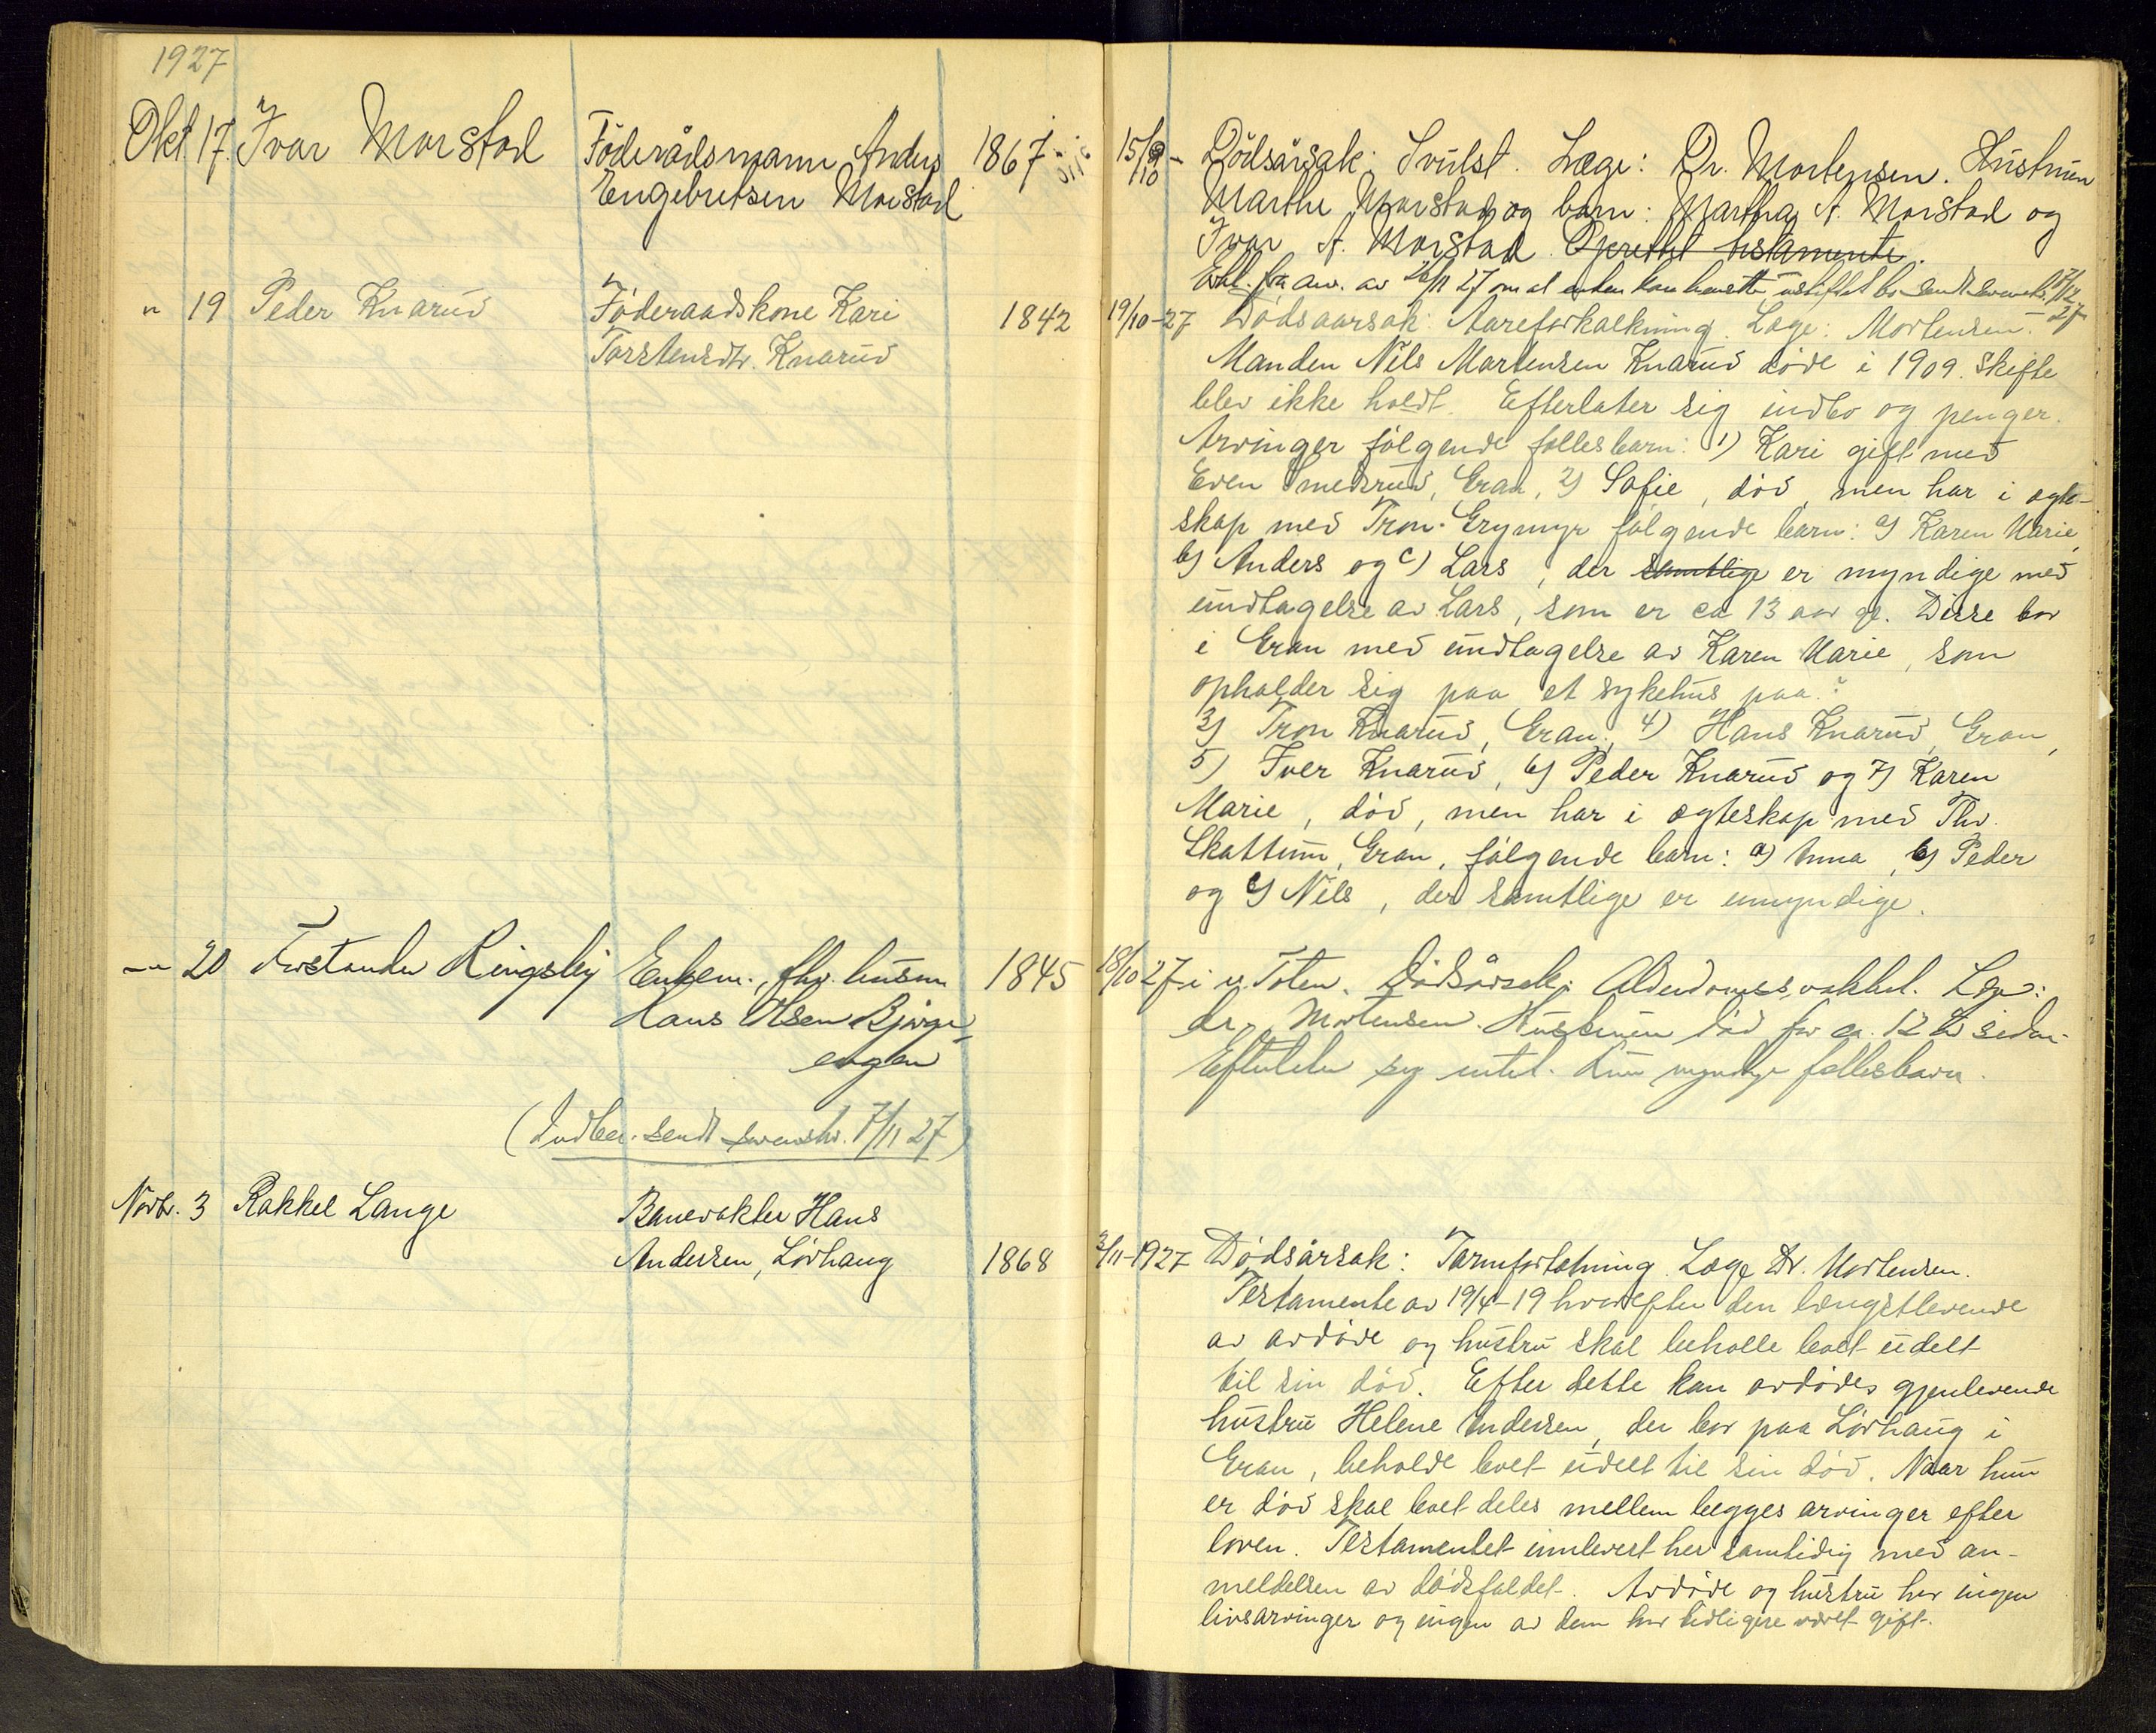 1927
Okt. 17. Ivar Morstad
Föderådsmann Anders
Engebretsen Morstad
1867
" 19 Peder Knarud
Föderaadskone Kari
Torstensdtr. Knarud
1842
-"- 20 Forstander Ringsby
Enkem., fhv. husm.
Hans Olsen Bjørge-
engen
1845
(Indber. sendt sorenskr. 7/11 27)
Novbr. 3 Rakkel Lange
Banevakter Hans
Andersen, Lövhaug
1868
15/10 - Dödsårsak: Svulst. Læge: Dr. Mortensen. Hustruen
Marthe Morstad og barn: Martha A. Morstad og
Ivar A. Morstad. Oprettet testamente.
Erkl. fra anv. av 26/11 27 om at enken kan hensitte i uskiftet bo sendt sorenskr. 17/12 27
19/10-27 Dødsaarsak: Aareforkalkning. Læge: Mortensen.
Manden Nils Mortensen Knarud døde i 1909. Skifte
blev ikke holdt. Efterlater sig indbo og penger.
Arvinger følgende fellesbarn: 1) Kari gift med
Even Smedsrud, Gran, 2) Sofie, død, men har i egte-
skap med Tron Grymyr følgende barn: a) Karen Marie,
b) Anders og c) Lars, der samtlige er myndige med
undtagelse av Lars, som er ca 13 aar gl. Disse bor
i Gran med undtagelse av Karen Marie, som
opholder sig paa et sykehus paa ?
3) Tron Knarud, Gran, 4) Hans Knarud, Gran,
5) Iver Knarud, 6) Peder Knarud og 7) Karen
Marie, død, men har i egteskap med Thv.
Skattum, Gran, følgende barn: a) Anna, b) Peder
og c) Nils, der samtlige er umyndige.
18/10 27 i v. Toten. Dødsårsak: Alderdomssvakhet. Læge:
dr. Mortensen. Hustruen død for ca. 12 år siden.
Efterlater sig intet. Kun myndige fellesbarn.
3/11-1927 Dødsårsak: Tarmfortetning. Læge Dr. Mortensen.
Testamente av 19/4-19 hvorefter den længstlevende
av avdøde og hustru skal beholle boet udelt
til sin død. Efter dette kan avdødes gjenlevende
hustru Helene Andersen, der bor paa Lövhaug i
Gran, beholde boet udelt til sin død. Naar hun
er død skal boet deles mellem begges arvinger efter
loven. Testamentet innlevert her samtidig med an-
meldelsen av dødsfaldet. Avdøde og hustru har ingen
livsarvinger og ingen av dem har tidligere vært gift.